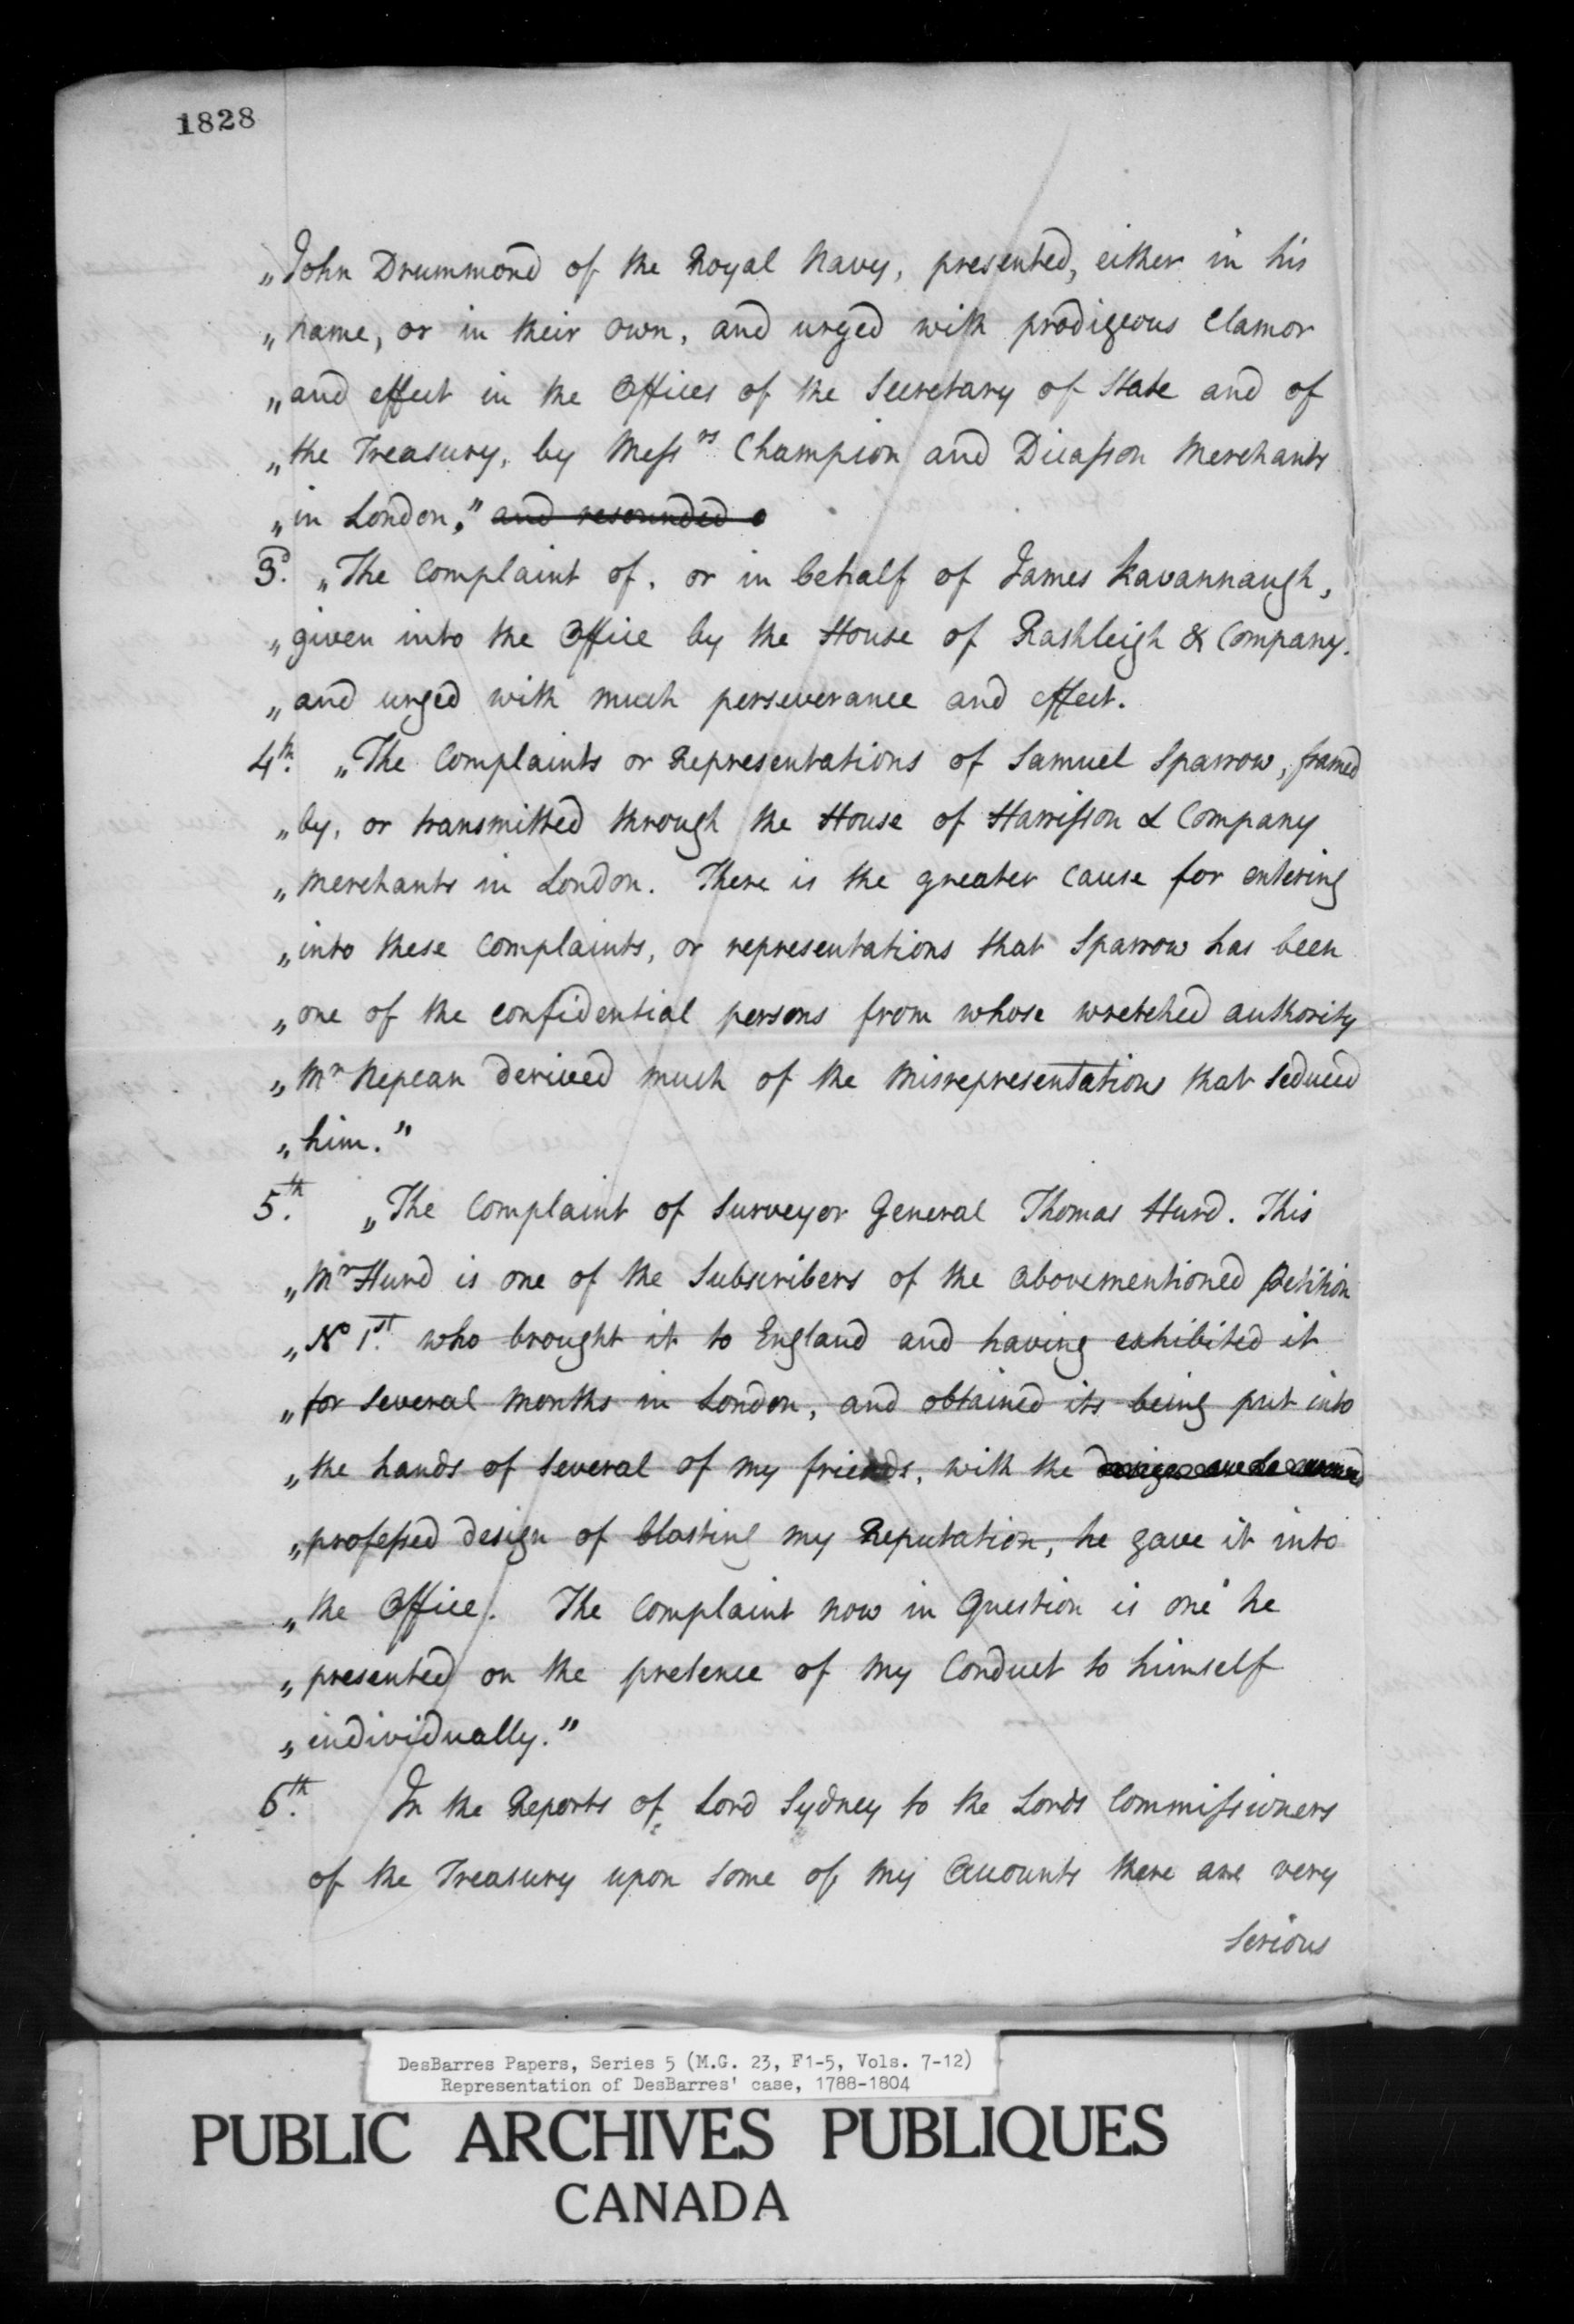 1828
„John Drummond of the Royal Navy, presented, either in his
„name, or in their own, and urged with prodigeous Clamor
„and effect in the Offices of the Secretary of State and of
„the Treasury, by Messrs Champion and Dicasson Merchants
„in London," and resounded
3d. „The Complaint of, or in behalf of James Kavannaugh,
„given into the Office by the House of Rashleigh & Company.
„and urged with much perseverance and effect.
4th. „The Complaints or Representations of Samuel Sparrow, framed
„by, or transmitted through the House of Harrisson & Company
„Merchants in London. There is the greater Cause for entering
„into these Complaints, or representations that Sparrow has been
„one of the confidential persons from whose wretched authority
„Mr Nepean derived much of the Misrepresentations that seduced
„him."
5th. „The Complaint of Surveyor General Thomas Hurd. This
„Mr Hurd is one of the Subscribers of the abovementioned Petition
„No 1st. who brought it to England and having exhibited it
„for several Months in London, and obtained its being put into
„the hands of several of my friends, with the
„professed design of blasting my Reputation, he gave it into
„the Office. The Complaint now in Question is one he
„presented on the pretence of my Conduct to himself
„individually."
6th. In the Reports of Lord Sydney to the Lords Commissioners
of the Treasury upon some of my Accounts there are very
Serious
DesBarres Papers, Series 5 (M.G. 23, F1-5, Vols. 7-12)
Representation of DesBarres' case, 1788-1804
PUBLIC ARCHIVES PUBLIQUES
CANADA